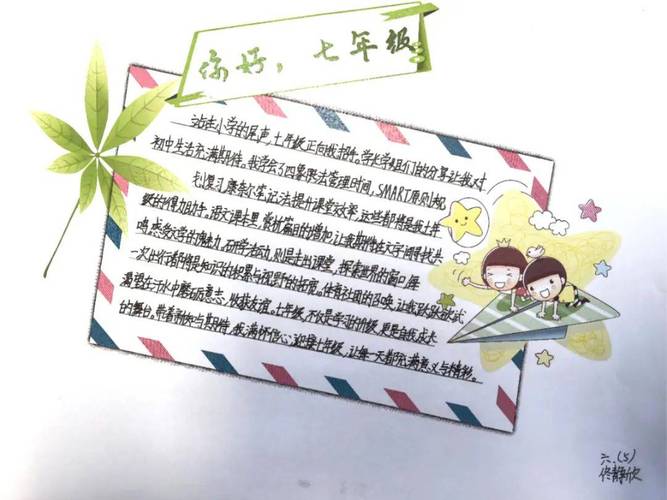 你好,七年级
站在小学的尾声,七年级正向我招手。学长学姐们的分享让我对
初中生活充满期待。我学会了四象限法管理时间,SMART原则规
划复习,康奈尔笔记法提升课堂效率,这些都将是我七年
级的得力助手。语文课本里,赏析篇目的增加,让我期待在文字间寻找共
鸣,感受文学的魅力。研学活动,则是走出课堂,探索世界的窗口,每
一次出行都将是知识的积累与视野的拓宽。体育社团的召唤,让我跃跃欲试
渴望在汗水中磨砺意志,收获友谊。七年级,不仅是学习的升级,更是自我成长
的舞台。带着新知与期待,我满怀信心,迎接七年级,让每一天都充满意义与精彩。
六.(5)
佟静欣